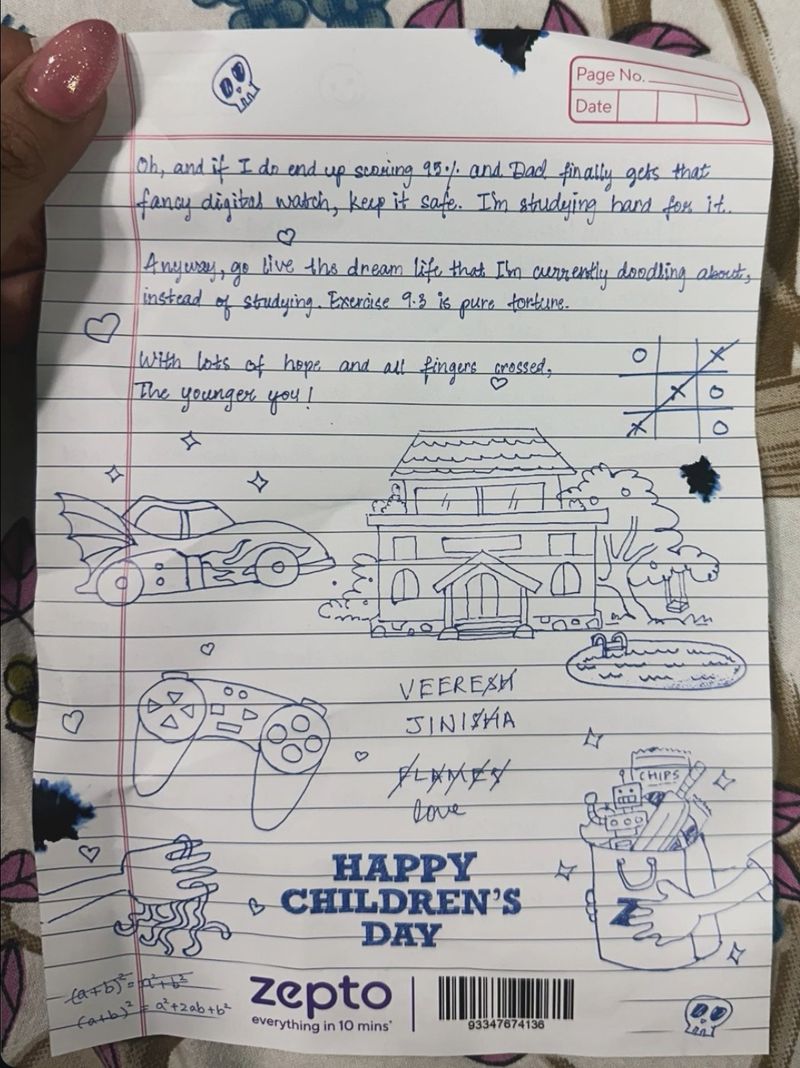 Page No.
Date
Oh, and if I do end up scoring 95% and Dad finally gets that
fancy digital watch, keep it safe. I'm studying hard for it.
Anyway, go live the dream life that I'm currently doodling about,
instead of studying. Exercise 9.3 is pure torture.
With lots of hope and all fingers crossed,
The younger you!
O X
X O
X O
VEERESH
JINISHA
FLAMES
love
CHIPS
Z
HAPPY
CHILDREN'S
DAY
(a+b)² = a²+b²
(a+b)² = a²+2ab+b²
zepto
everything in 10 mins*
93347674136